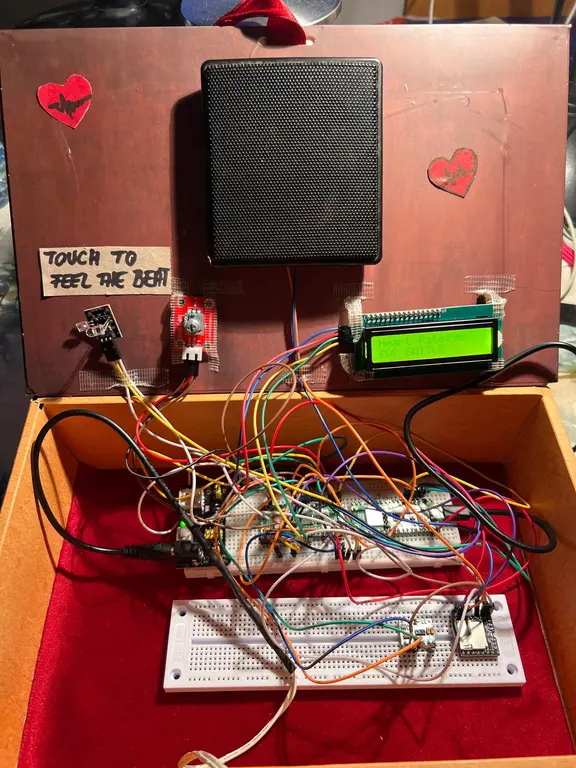 TOUCH TO
FEEL THE BEAT
Heart Rate: